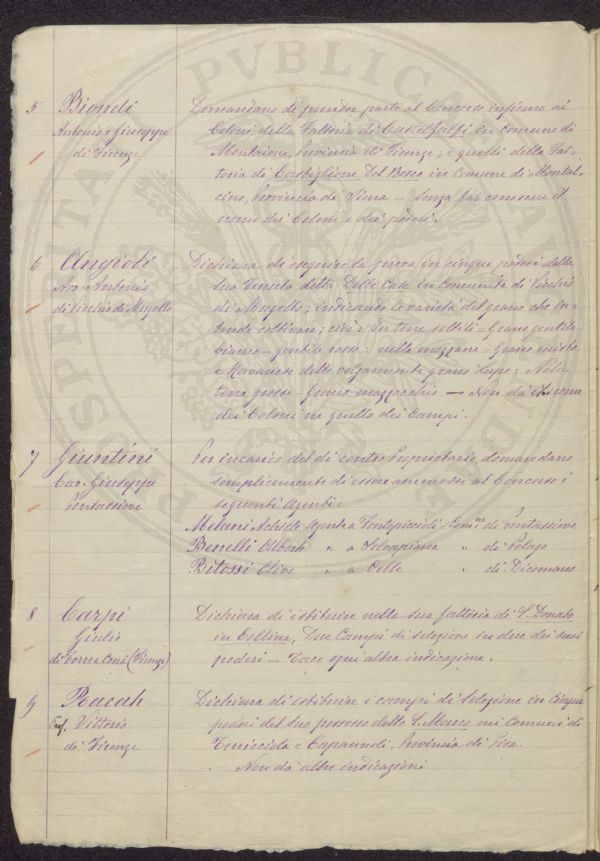 PVBLICA
PROSPERITAS
5 Biondi
Antonio e Giuseppe
di Firenze
Domandano di prender parte al Concorso insieme ai
Coloni della Fattoria di Castelfalfi in comune di
Montaione, Provincia di Firenze; e quelli della Fat-
toria di Castiglione Del Bosco in Comune di Montal-
cino, Provincia di Siena — senza far conoscere il
nome dei Coloni e dei poderi.
6 Angioli
Avv. Antonio
di Vicchio di Mugello
Dichiara di eseguire la prova in cinque poderi della
sua Tenuta detta Delle Case in Comunità di Vicchio
di Mugello; indicando le varietà del grano che in-
tende coltivare; cioè: In terre sottili = Grano gentile
bianco - gentile rosso: nelle mezzane = Grano misto
e Maranese detto volgarmente grano lupo: Nelle
terre grosse Grano mazzocchio — Non dà il nome
dei Coloni nè quello dei Campi.
7 Giuntini
Cav. Giuseppe
Pontassieve
Per incarico del di contro Proprietario, domandano
semplicemente di essere ammessi al Concorso i
seguenti Agenti:
Melani Achille Agente a Comne di Pontassieve
Benelli Alberto " a Selvapiana " di Pelago
Bitossi Olivo " a Celle " di Dicomano
8 Carpi
Giulio
di (Firenze)
Dichiara di istituire nella sua fattoria di S. Donato
in Collina, Due Campi di selezione in due dei suoi
poderi — Tace ogni altra indicazione.
9 Racah
Prof. Vittorio
di Firenze
Dichiara di istituire i campi di Selezione in Cinque
poderi del suo possesso detto S. Marco nei Comuni di
e Capannoli, Provincia di Pisa.
Non dà altre indicazioni